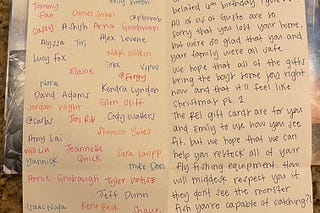 Tommy Fan
Daniel Swan
Molly Goodman
@pbomb
Casey
Ashish
Amanda
Alyssa
Tori
Alex Levene
Lucy Fox
Nikki Wilkin
Greg
Vipul
Elaine
@Fergy
Nora
Kendra Lyndon
David Adams
Jordan Wight
Glen Cliff
@carlos
Toni Rub
Cody Walters
Amy Lai
Shannon Yates
Will Lin
Jeannette Quick
Sara Laupp
Yannick
Mike Dosi
Annie Grubaugh
Tyler
Jeff Dunn
Isaac
Kent Beck
Shane
belated 4th birthday
All of us at Gusto are so
sorry that you lost your home,
but were so glad that you and
your family were all safe.
We hope that all of the gifts
bring the boys some joy right
now and that it'll feel like
Christmas pt. 2
The REI gift cards are for you
and Emily to use how you see
fit, but we hope that we can
help you restock all of your
fly fishing equipment. How
will middesk respect you if
they don't see the monster
fish you're capable of catching?!